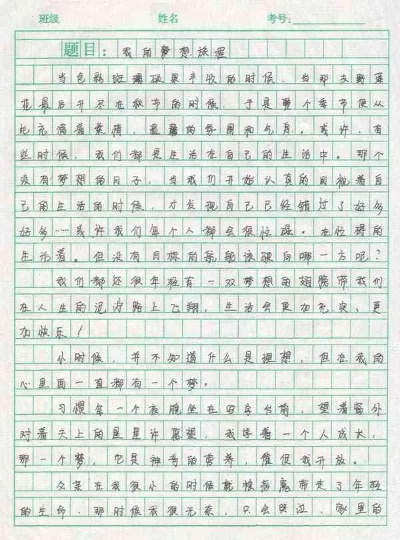 班级 姓名 考号:
题目: 我的梦想旅程
当色彩斑斓硕果丰收的时候,当那支野菊
花最后开尽在秋节的时候,于是整个季节便从
此充满着柔情,温馨的氛围和气息。或许,有
些时候,我们都是生活在自己的生活中。那个
没有梦想的日子,当我们开始认真的回视着自
己的生活的时候,才发现自己已经错过了好多
好多……或许我们每个人都会很忙碌。在忙碌的
生活着。但没有目标的旅程该驶向哪一方呢?
我们都还很年轻有一双梦想的翅膀带我们
在人生的泥泞路上飞翔,生活会更加充实、更
加快乐!
小时候,并不知道什么是理想,但在我的
心里面一直都有一个梦。
习惯每一个夜晚坐在窗台前,望着窗外
对着天上的星星许愿望,我伴着一个人成长,
那一个梦,它是神奇的营养,催促我开放。
父亲在我很小的时候就被病魔带走了年轻
的生命,那时候我很无奈,只会哭泣,家里的